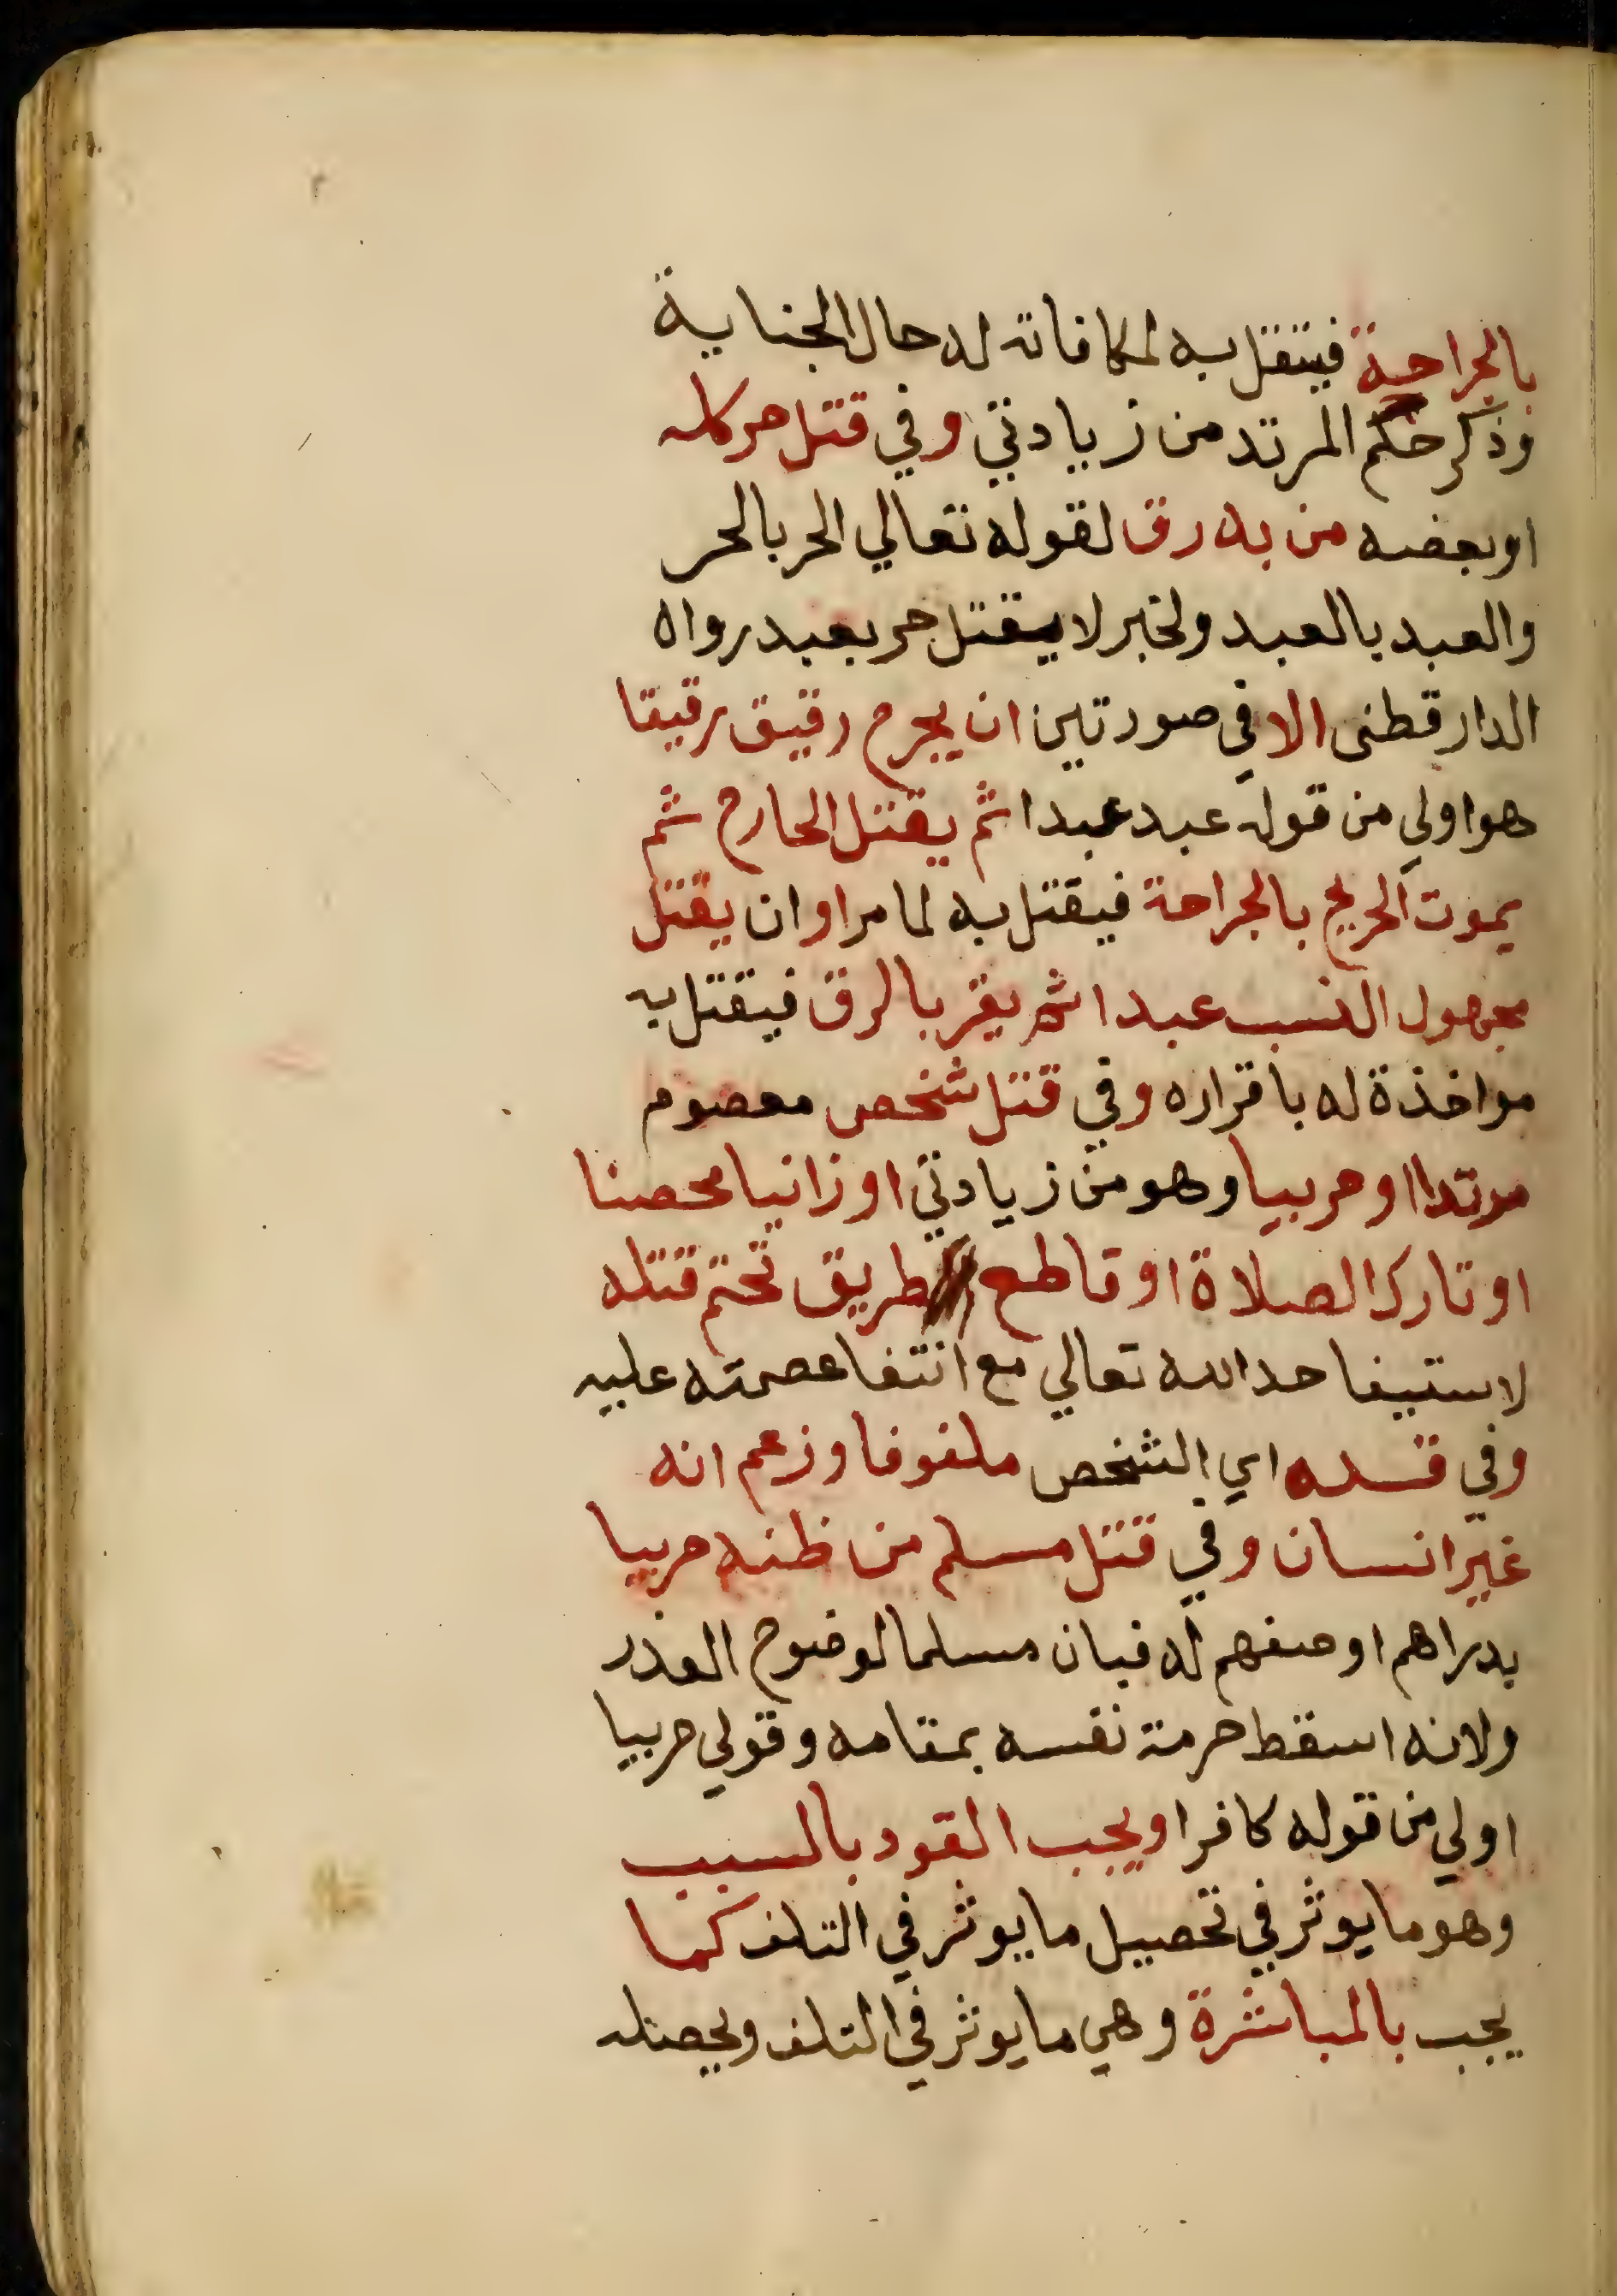 بالجراحة فيقتل به لمكافاته له حال الجناية
وذكر حكم المرتد من زيادتي وفي قتل حر كله
او بعضه من به رق لقوله تعالي الحر بالحر
والعبد بالعبد ولخبر لا يقتل حر بعبد رواه
الدارقطنى الا في صورتين ان يجرح رقيق رقيقا
هو اولي من قوله عبد عبدا ثم يقتل الجارح ثم
يموت الجريح بالجراحة فيقتل به لما مر او ان يقتل
مجهول النسب عبدا ثم يقر بالرق فيقتل به
مواخذة له باقراره وفي قتل شخص معصوم
مرتدا او حربيا وهو من زيادتي او زانيا محصنا
او تارك الصلاة او قاطع طريق تحتم قتله
لاستيفا حد الله تعالي مع انتفا عصمته عليه
وفي قتله اي الشخص ملفوفا وزعم انه
غير انسان وفي قتل مسلم من ظنه حربيا
بدراهم او صفهم له فبان مسلما لوضوح العذر
ولانه اسقط حرمة نفسه بمقامه وقولي حربيا
اولي من قوله كافرا ويجب القود بالسبب
وهو ما يوثر في تحصيل ما يوثر في التلف كما
يجب بالمباشرة وهي ما يوثر في التلف ويحصله